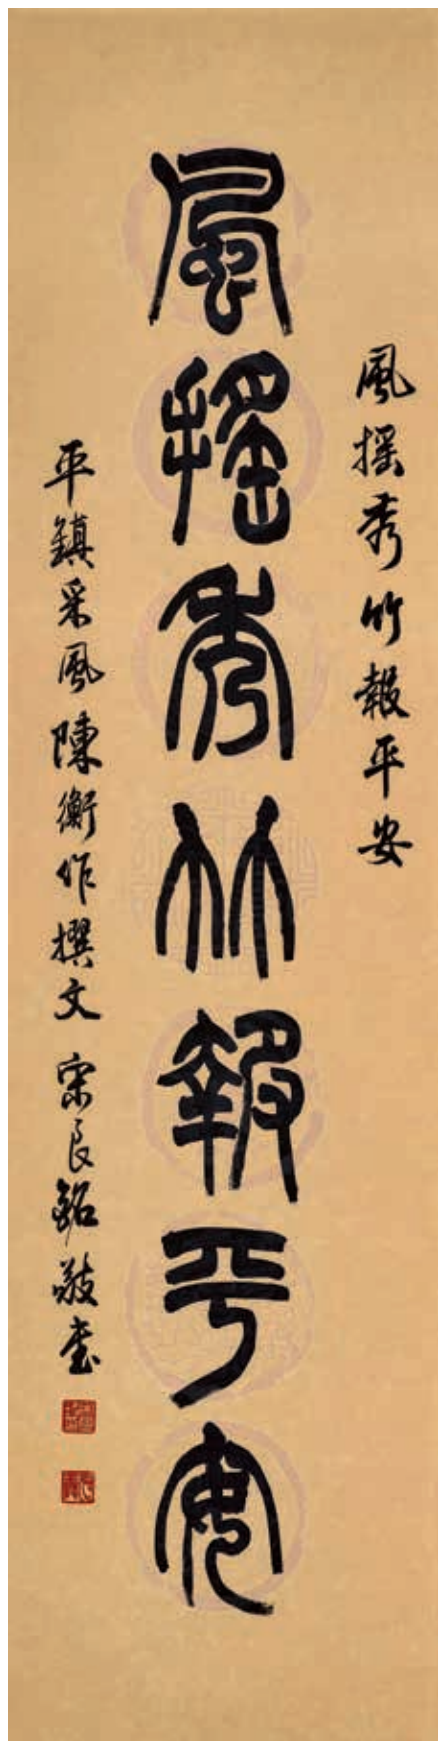 風搖秀竹報平安
風搖秀竹報平安
平鎮采風陳衡作撰文 宋良銘敬書